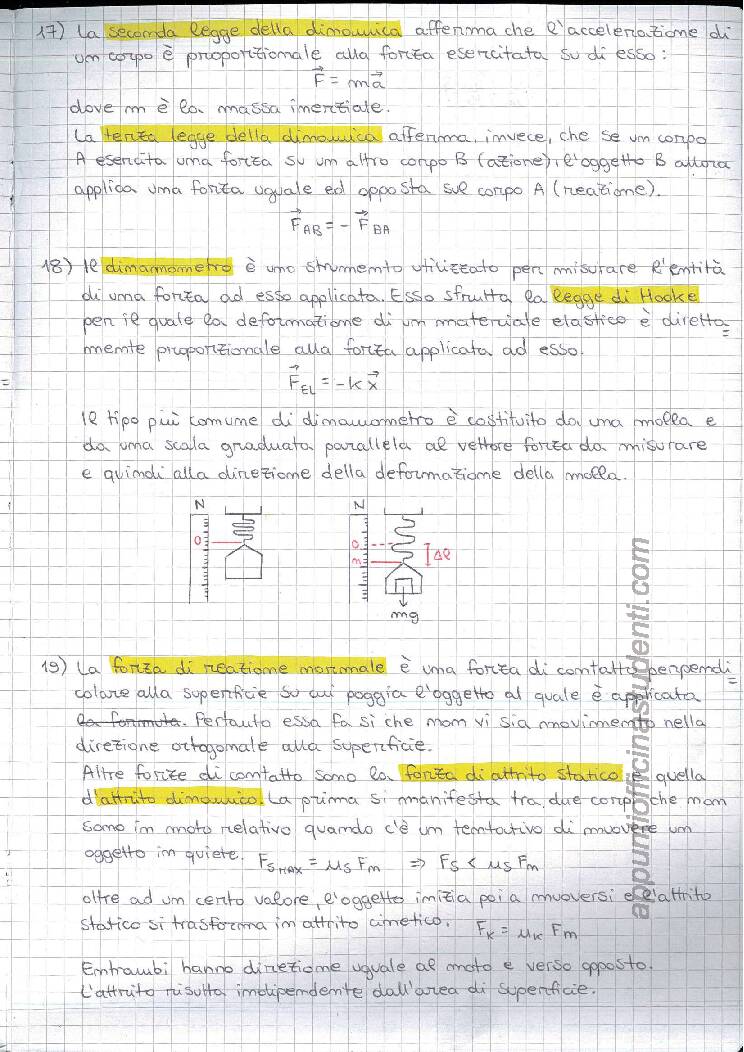 17) La seconda legge della dinamica afferma che l'accelerazione di
un corpo è proporzionale alla forza esercitata su di esso:
F = ma
dove m è la massa inerziale.
La terza legge della dinamica afferma, invece, che se un corpo
A esercita una forza su un altro corpo B (azione), l'oggetto B allora
applica una forza uguale ed opposta sul corpo A (reazione).
F AB = - F BA
18) Il dinamometro è uno strumento utilizzato per misurare l'entità
di una forza ad esso applicata. Esso sfrutta la legge di Hooke
per il quale la deformazione di un materiale elastico è diretta=
mente proporzionale alla forza applicata ad esso.
F EL = -k x
Il tipo più comune di dinamometro è costituito da una molla e
da una scala graduata parallela al vettore forza da misurare
e quindi alla direzione della deformazione della molla.
N N
0 0 m Δl
mg
19) La forza di reazione normale è una forza di contatto perpendi=
colare alla superficie su cui poggia l'oggetto al quale è applicata
la formula. Pertanto essa fa sì che non vi sia movimento nella
direzione ortogonale alla superficie.
Altre forze di contatto sono la forza di attrito statico e quella
d'attrito dinamico. La prima si manifesta tra due corpi che non
sono in moto relativo quando c'è un tentativo di muovere un
oggetto in quiete. Fs MAX = μs Fn ⇒ Fs < μs Fn
oltre ad un certo valore, l'oggetto inizia poi a muoversi e l'attrito
statico si trasforma in attrito cinetico. Fk = μk Fn
Entrambi hanno direzione uguale al moto e verso opposto.
L'attrito risulta indipendente dall'area di superficie.
appuntiofficinastudenti.com